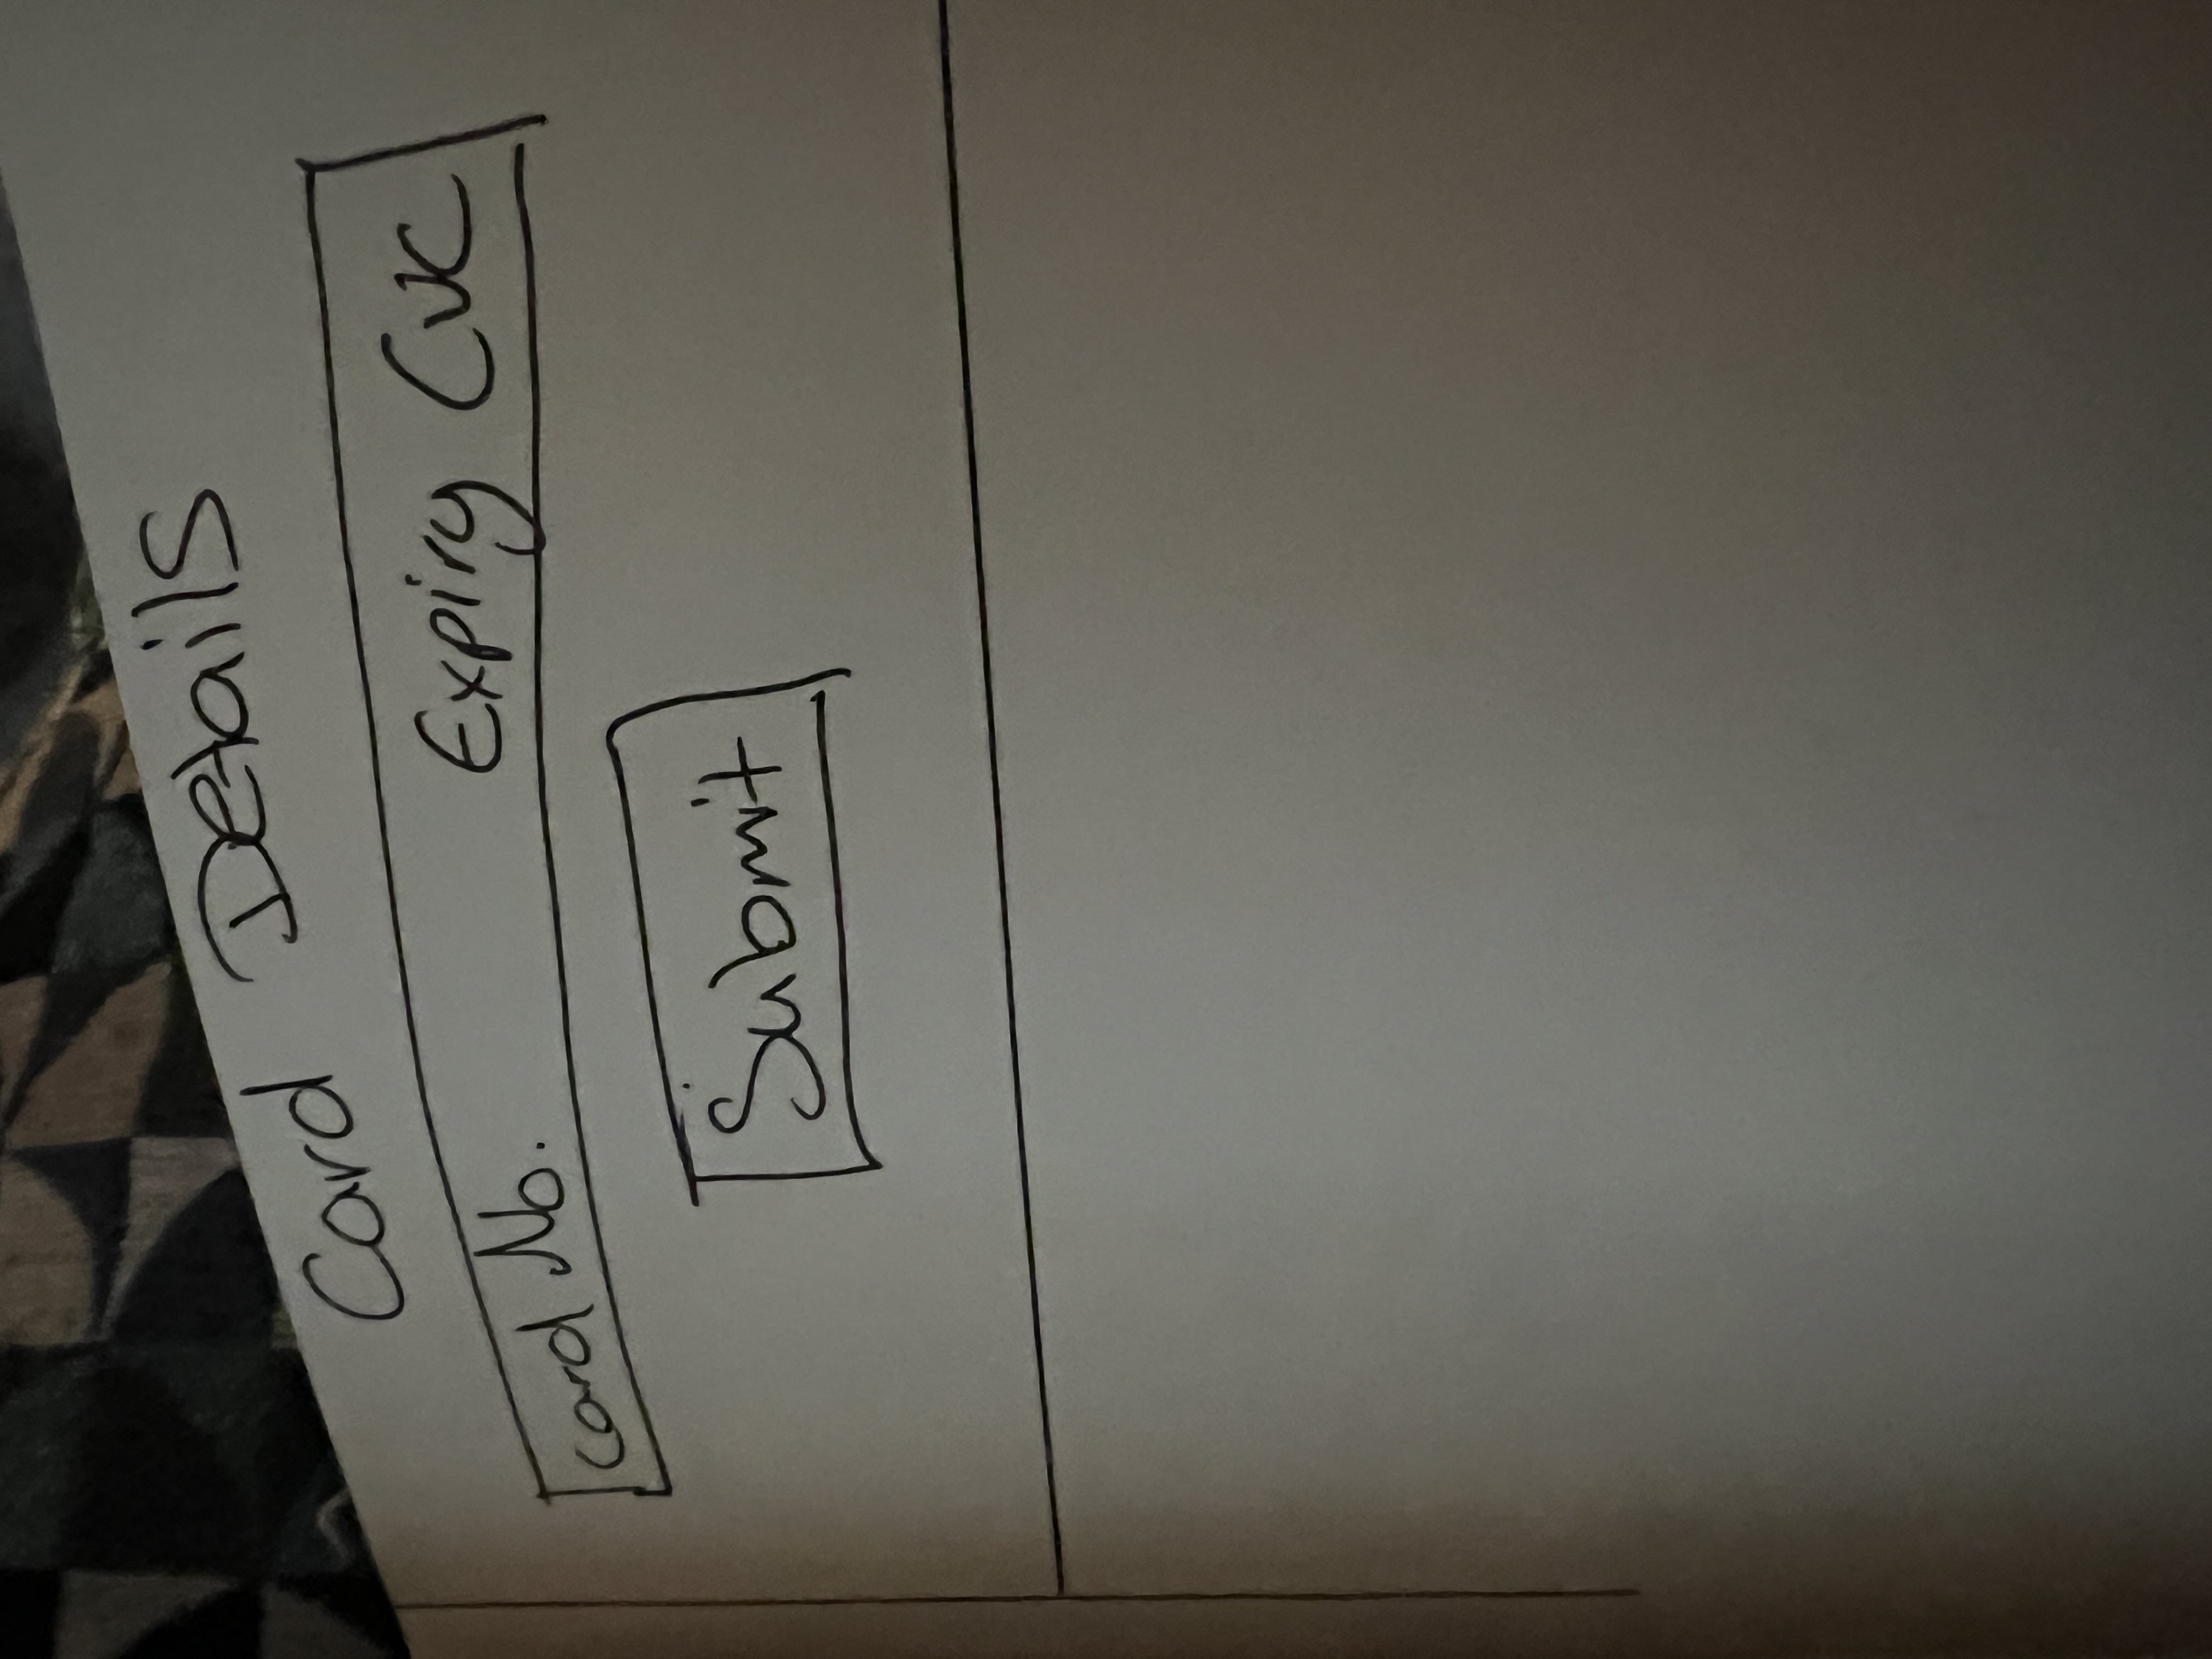 Card Details
card No. Expiry CVC
Submit